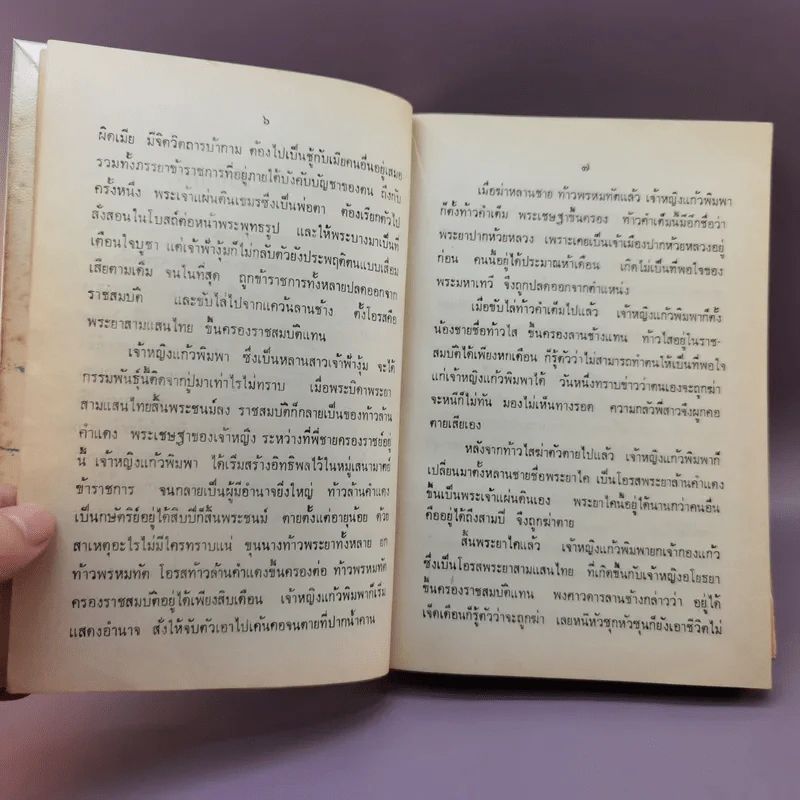 ๖
ผิดเมีย มีจิตวิตถารบ้ากาม ต้องไปเป็นชู้กับเมียคนอื่นอยู่เสมอ
รวมทั้งภรรยาข้าราชการที่อยู่ภายใต้บังคับบัญชาของตน ถึงกับ
ครั้งหนึ่ง พระเจ้าแผ่นดินเขมรซึ่งเป็นพ่อตา ต้องเรียกตัวไป
สั่งสอนในโบสถ์ต่อหน้าพระพุทธรูป และให้พระบางมาเป็นที่
เตือนใจบูชา แต่เจ้าฟ้างุ้มก็ไม่กลับตัวยังประพฤติตนแบบเสื่อม
เสียตามเดิม จนในที่สุด ถูกข้าราชการทั้งหลายปลดออกจาก
ราชสมบัติ และขับไล่ไปจากแคว้นลานช้าง ตั้งโอรสคือ
พระยาสามแสนไทย ขึ้นครองราชสมบัติแทน
เจ้าหญิงแก้วพิมพา ซึ่งเป็นหลานสาวเจ้าฟ้างุ้ม จะได้
กรรมพันธุ์นี้ติดจากปู่มาเท่าไรไม่ทราบ เมื่อพระบิดาพระยา
สามแสนไทยสิ้นพระชนม์ลง ราชสมบัติก็กลายเป็นของท้าวล้าน
คำแดง พระเชษฐาของเจ้าหญิง ระหว่างที่พี่ชายครองราชย์อยู่
นี้ เจ้าหญิงแก้วพิมพา ได้เริ่มสร้างอิทธิพลไว้ในหมู่เสนามาตย์
ข้าราชการ จนกลายเป็นผู้มีอำนาจยิ่งใหญ่ ท้าวล้านคำแดง
เป็นกษัตริย์อยู่ได้สิบปีก็สิ้นพระชนม์ ตายตั้งแต่อายุน้อย ด้วย
สาเหตุอะไรไม่มีใครทราบแน่ ขุนนางท้าวพระยาทั้งหลาย ยก
ท้าวพรหมทัต โอรสท้าวล้านคำแดงขึ้นครองต่อ ท้าวพรหมทัต
ครองราชสมบัติอยู่ได้เพียงสิบเดือน เจ้าหญิงแก้วพิมพาก็เริ่ม
แสดงอำนาจ สั่งให้จับตัวเอาไปเค้นคอจนตายที่ปากน้ำคาน
๗
เมื่อฆ่าหลานชาย ท้าวพรหมทัตแล้ว เจ้าหญิงแก้วพิมพา
ก็ตั้งท้าวคำเต็ม พระเชษฐาขึ้นครอง ท้าวคำเต็มนี้มีอีกชื่อว่า
พระยาปากห้วยหลวง เพราะเคยเป็นเจ้าเมืองปากห้วยหลวงอยู่
ก่อน คนนี้อยู่ได้ประมาณห้าเดือน เกิดไม่เป็นที่พอใจของ
พระมหาเทวี จึงถูกปลดออกจากตำแหน่ง
เมื่อขับไล่ท้าวคำเต็มไปแล้ว เจ้าหญิงแก้วพิมพาก็ตั้ง
น้องชายชื่อท้าวไส ขึ้นครองลานช้างแทน ท้าวไสอยู่ในราช-
สมบัติได้เพียงหกเดือน ก็รู้ตัวว่าไม่สามารถทำตนให้เป็นที่พอใจ
แก่เจ้าหญิงแก้วพิมพาได้ วันหนึ่งทราบข่าวว่าตนเองจะถูกฆ่า
จะหนีก็ไม่ทัน มองไม่เห็นทางรอด ความกลัวพี่สาวจึงผูกคอ
ตายเสียเอง
หลังจากท้าวไสฆ่าตัวตายไปแล้ว เจ้าหญิงแก้วพิมพาก็
เปลี่ยนมาตั้งหลานชายชื่อพระยาไค เป็นโอรสพระยาล้านคำแดง
ขึ้นเป็นพระเจ้าแผ่นดินเอง พระยาไคนี้อยู่ได้นานกว่าคนอื่น
คืออยู่ได้ถึงสามปี จึงถูกฆ่าตาย
สิ้นพระยาไคแล้ว เจ้าหญิงแก้วพิมพายกเจ้ากองแก้ว
ซึ่งเป็นโอรสพระยาสามแสนไทย ที่เกิดขึ้นกับเจ้าหญิงอโยธยา
ขึ้นครองราชสมบัติแทน พงศาวดารลานช้างกล่าวว่า อยู่ได้
เจ็ดเดือนก็รู้ตัวว่าจะถูกฆ่า เลยหนีหัวซุกหัวซุนก็ยังเอาชีวิตไม่